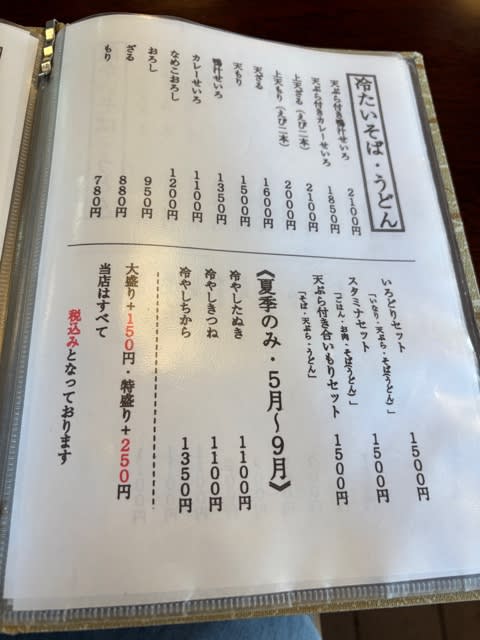 冷たいそば・うどん
天ぷら付き鴨汁せいろ 2100円
天ぷら付きカレーせいろ 1850円
上天ざる（えび二本） 2100円
上天もり（えび二本） 2000円
天ざる 1600円
天もり 1500円
鴨汁せいろ 1350円
カレーせいろ 1100円
なめこおろし 1200円
おろし 950円
ざる 880円
もり 780円
いろどりセット 1500円
「いなり・天ぷら・そばうどん」
スタミナセット 1500円
「ごはん・お肉・そばうどん」
天ぷら付き合いもりセット 1500円
「そば・天ぷら・うどん」
《夏季のみ・5月～9月》
冷やしたぬき 1100円
冷やしきつね 1100円
冷やしちから 1350円
大盛り＋150円・特盛り＋250円
当店はすべて
税込みとなっております